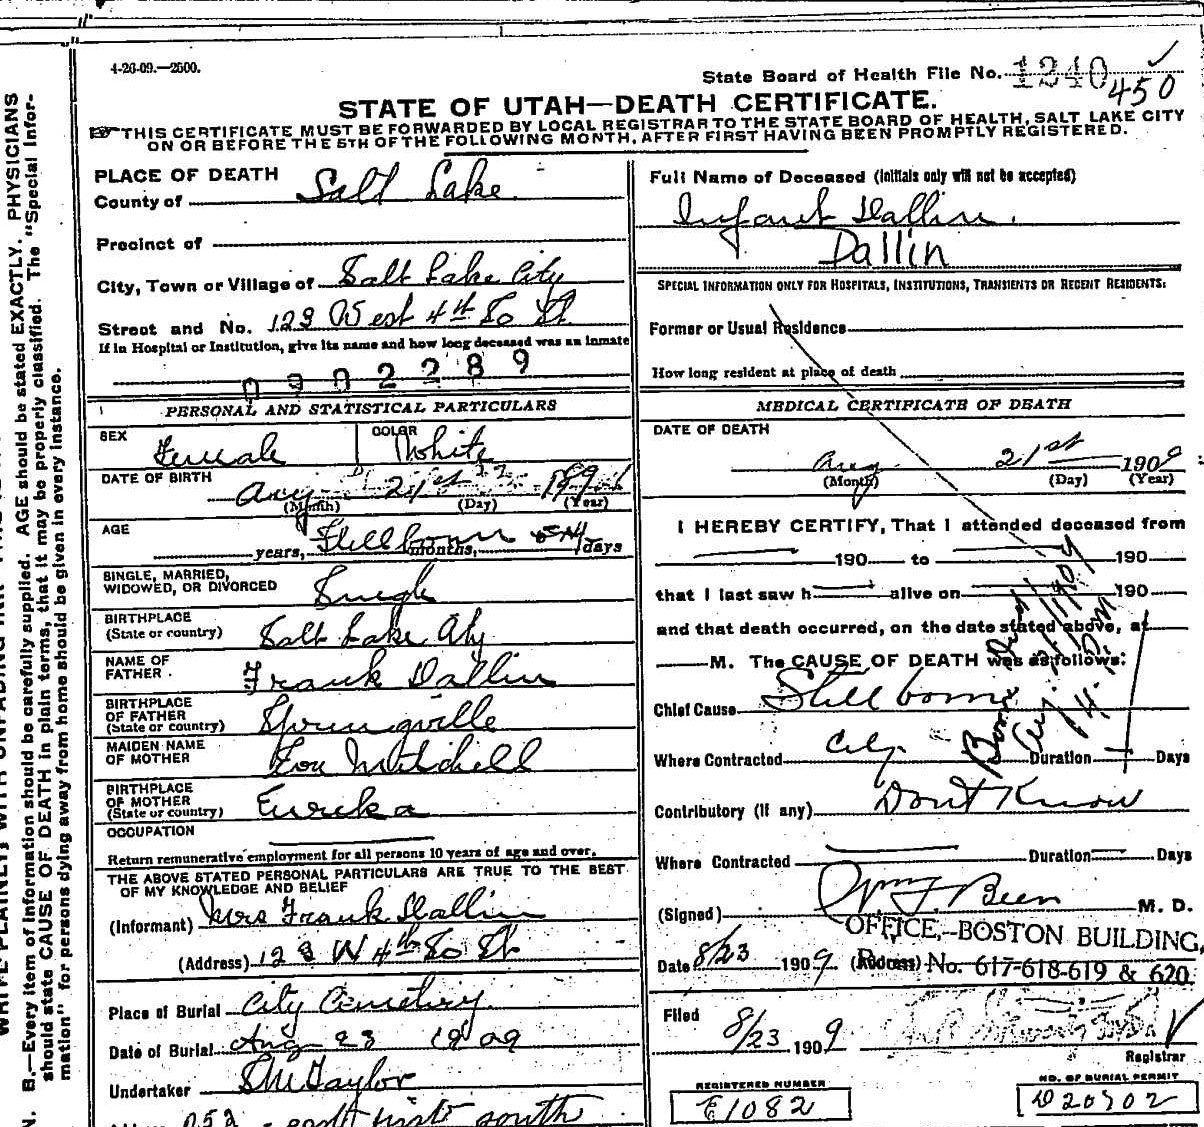 4-26-09.—2500.
State Board of Health File No. 1240 450
STATE OF UTAH—DEATH CERTIFICATE.
THIS CERTIFICATE MUST BE FORWARDED BY LOCAL REGISTRAR TO THE STATE BOARD OF HEALTH, SALT LAKE CITY
ON OR BEFORE THE 5TH OF THE FOLLOWING MONTH, AFTER FIRST HAVING BEEN PROMPTLY REGISTERED.
PLACE OF DEATH
County of Salt Lake
Precinct of
City, Town or Village of Salt Lake City
Street and No. 123 West 4th So St
If in Hospital or Institution, give its name and how long deceased was an inmate
PERSONAL AND STATISTICAL PARTICULARS
SEX Female
COLOR White
DATE OF BIRTH Aug 21st
(Month) (Day) (Year)
AGE Stillborn
years, months, days
SINGLE, MARRIED,
WIDOWED, OR DIVORCED Single
BIRTHPLACE
(State or country) Salt Lake City
NAME OF
FATHER. Frank Dallin
BIRTHPLACE
OF FATHER
(State or country) Springville
MAIDEN NAME
OF MOTHER Lou Mitchell
BIRTHPLACE
OF MOTHER
(State or country) Eureka
OCCUPATION
Return remunerative employment for all persons 10 years of age and over.
THE ABOVE STATED PERSONAL PARTICULARS ARE TRUE TO THE BEST
OF MY KNOWLEDGE AND BELIEF
(Informant) Mrs Frank Dallin
(Address) 123 W 4th So St
Place of Burial City Cemetery
Date of Burial Aug 23 1909
Undertaker S M Taylor
first south
Full Name of Deceased (Initials only will not be accepted)
Infant Dallin.
Dallin
SPECIAL INFORMATION ONLY FOR HOSPITALS, INSTITUTIONS, TRANSIENTS OR RECENT RESIDENTS:
Former or Usual Residence
How long resident at place of death
MEDICAL CERTIFICATE OF DEATH
DATE OF DEATH
Aug 21st 1909
(Month) (Day) (Year)
I HEREBY CERTIFY, That I attended deceased from
190 to 190
that I last saw h alive on 190
and that death occurred, on the date stated above, at
M. The CAUSE OF DEATH was as follows:
Chief Cause Stillborn
Born Dead
Aug. 21st 1909
Where Contracted City. Duration Days
Contributory (if any) Dont Know
Where Contracted Duration Days
(Signed) Wm F. Beer M. D.
OFFICE,—BOSTON BUILDING,
Date 8/23 1909. (Address) Room No. 617-618-619 & 620.
Filed 8/23 1909
Registrar
REGISTERED NUMBER
E1082
NO. OF BURIAL PERMIT
D20902
B.—Every item of information should be carefully supplied. AGE should be stated EXACTLY. PHYSICIANS
should state CAUSE OF DEATH in plain terms, that it may be properly classified. The "Special Infor-
mation" for persons dying away from home should be given in every instance.